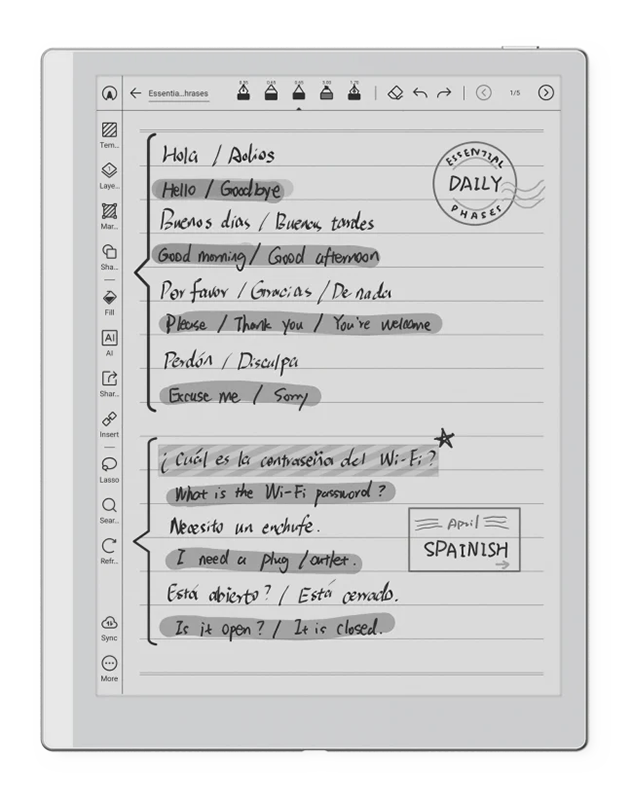 Essentia...hrases
0.30 0.65 0.65 3.00 1.70
1/5
Tem...
Laye...
Mar...
Sha...
Fill
AI
AI
Shar...
Insert
Lasso
Sear...
Refr...
Sync
More
Hola / Adios
Hello / Goodbye
Buenos dias / Buenas tardes
Good morning / Good afternoon
Por favor / Gracias / De nada
Please / Thank you / You're welcome
Perdón / Disculpa
Excuse me / Sorry
ESSENTIAL
DAILY
PHASES
¿Cuál es la contraseña del Wi-Fi?
What is the Wi-Fi password?
Necesito un enchufe.
I need a plug /outlet.
Está abierto? / Está cerrado.
Is it open? / It is closed.
April
SPAINISH